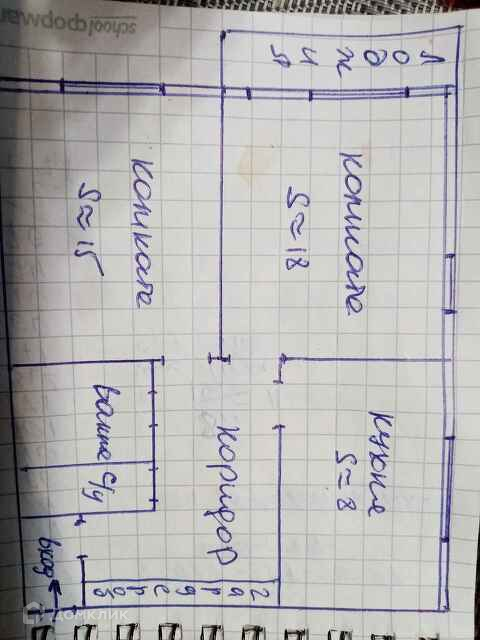 schoolформат
лоджия
комната
S≈18
комната
S≈15
кухня
S≈8
коридор
ванна
с/у
гардероб
вход
ДОМКЛИК